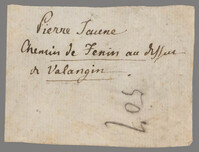 Pierre Jaune
Chemin de Fenin au dessus
de Valangin